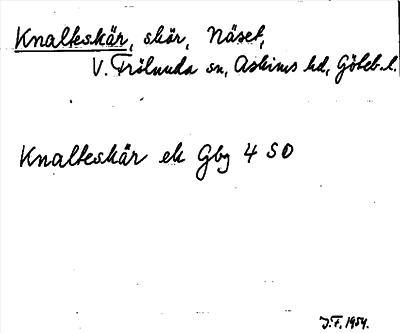 Knalteskär, skär, Näset,
V. Frölunda sn, Askims hd, Göteb. l.
Knalteskär ek Gbg 4 SO
J.F. 1954.